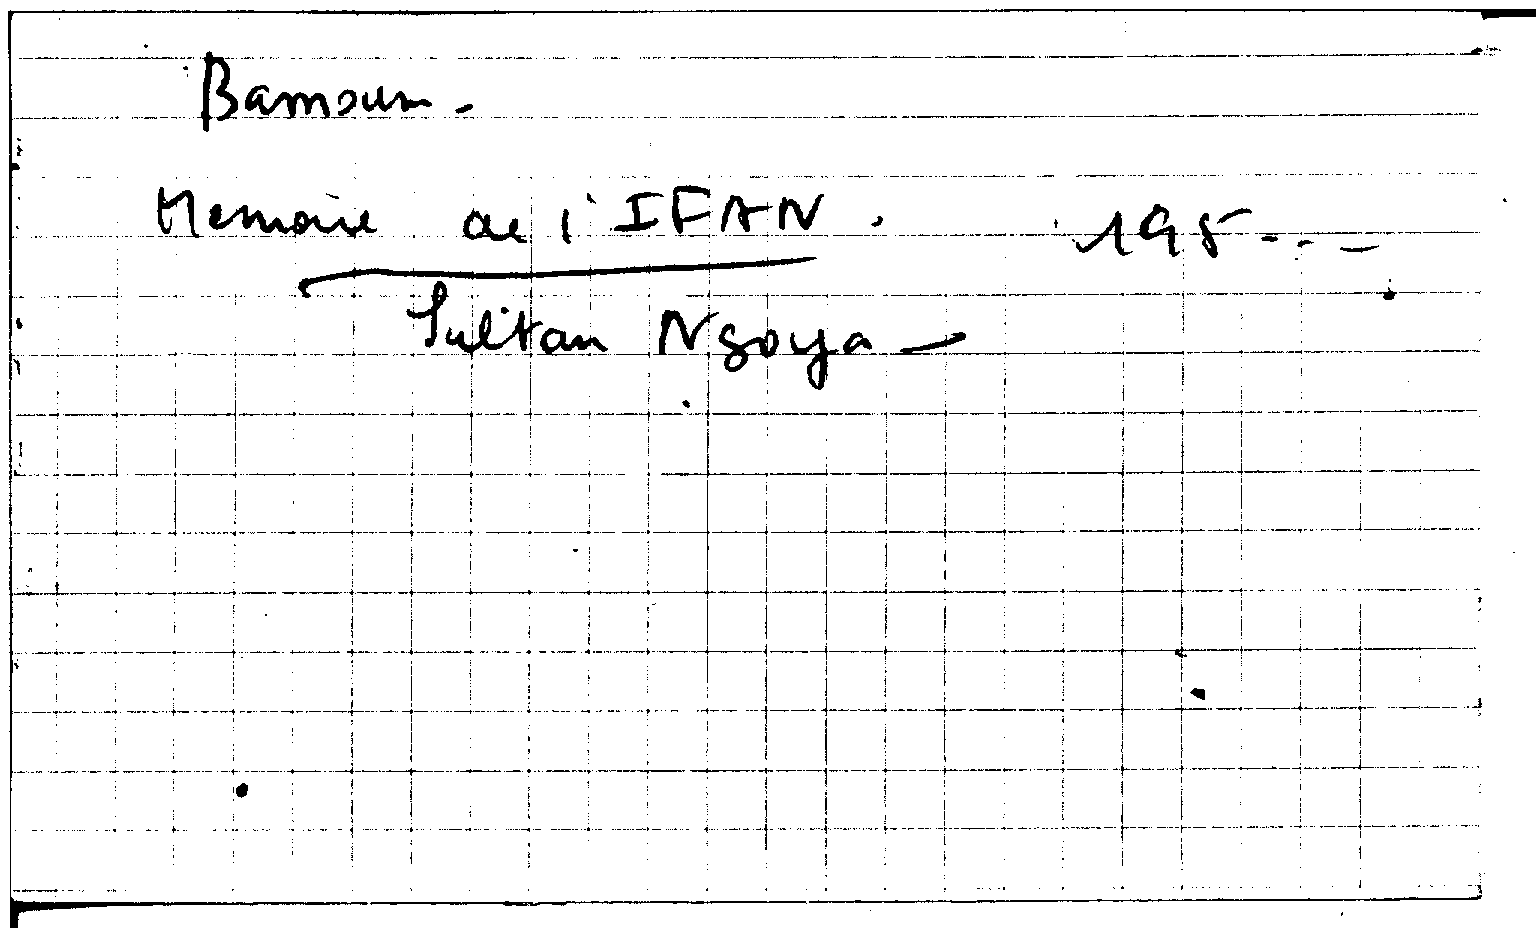 Bamoum -
Memoire de l'IFAN. 195...-
Sultan Njoya -